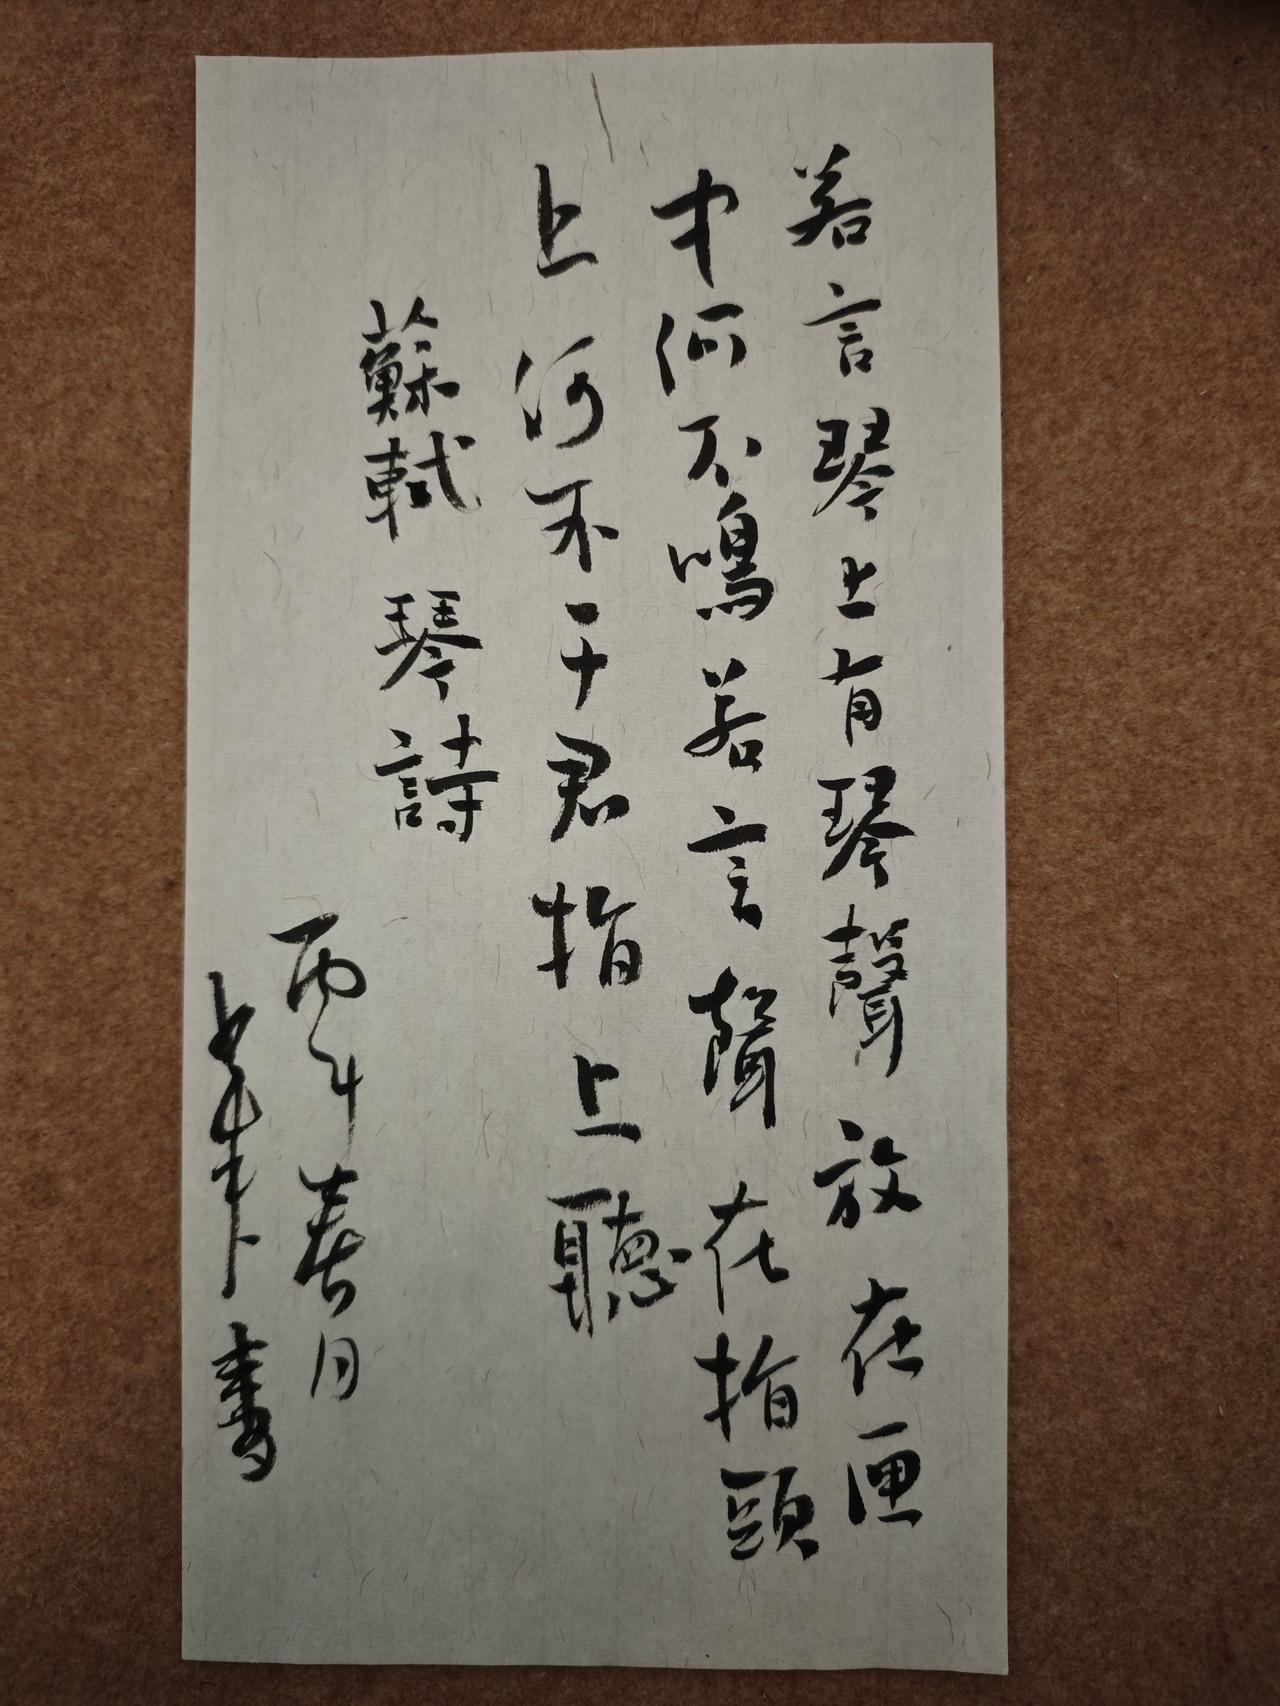 若言琴上有琴聲放在匣
中何不鳴若言聲在指頭
上何不于君指上聽
蘇軾琴詩
丙午春月
書